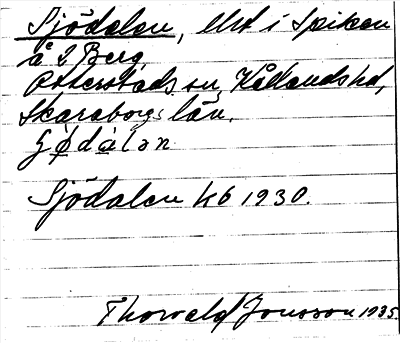 Sjödalen, lht i Spiken
å 2 Berg,
Otterstads sn, Kållands hd,
Skaraborgs län.
Sjödalen kb 1930.
Thorwald Jonsson 1935.